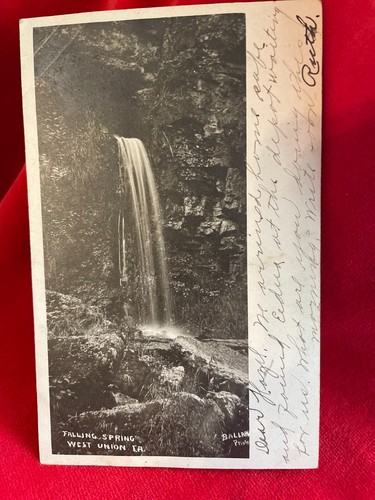 FALLING SPRING
WEST UNION IA.
BALLUF
Photo
Dear Hazel. We arrived home safe
and found Eedus at the depot waiting
for us. What are you doing this
morning. Write soon
Ruth.